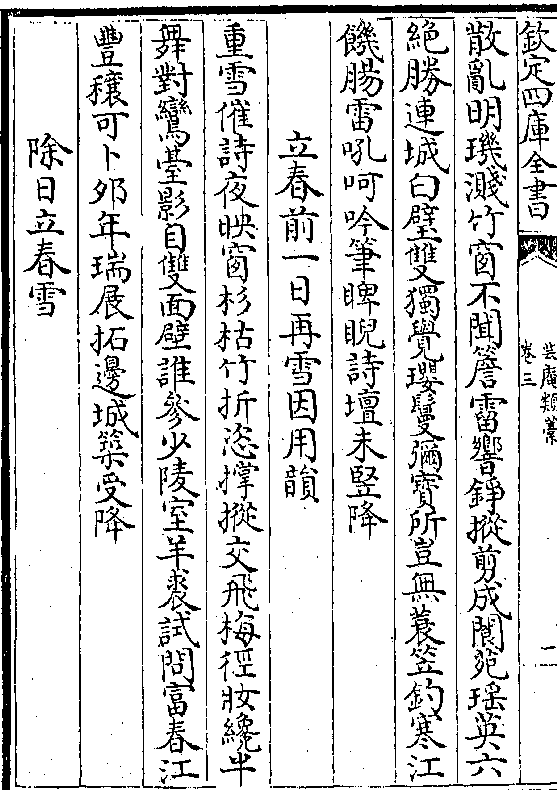 欽定四庫全書
芸庵類藁
卷三
二
散亂明璣濺竹窗不聞簷霤響錚摐剪成閬苑瑶英六
絶勝連城白璧雙獨覺瓔鬘彌寳所豈無蓑笠釣寒江
饑腸雷吼呵吟筆睥睨詩壇未竪降
立春前一日再雪因用韻
重雪催詩夜映窗杉枯竹折恣撑摐交飛梅徑妝纔半
舞對鸞臺影自雙面壁誰參少陵室羊裘試問富春江
豐穰可卜夘年瑞展拓邊城築受降
除日立春雪